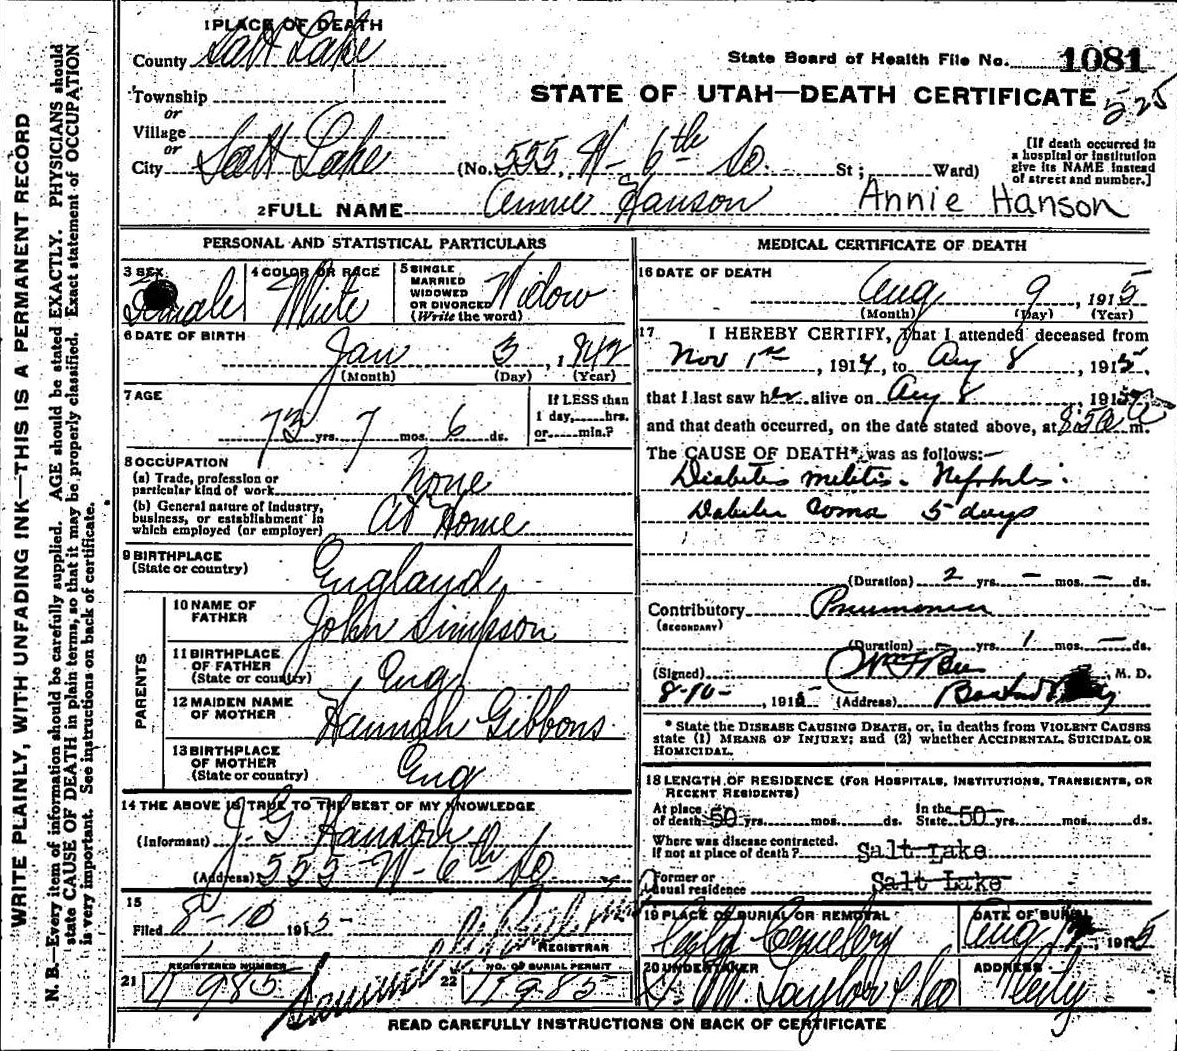 WRITE PLAINLY, WITH UNFADING INK—THIS IS A PERMANENT RECORD
N. B.—Every item of information should be carefully supplied. AGE should be stated EXACTLY. PHYSICIANS should
state CAUSE OF DEATH in plain terms, so that it may be properly classified. Exact statement of OCCUPATION
is very important. See instructions on back of certificate.
1 PLACE OF DEATH
County Salt Lake
State Board of Health File No. 1081
Township
STATE OF UTAH—DEATH CERTIFICATE 525
or
Village
or
City Salt Lake (No. 555 W- 6th So. St; Ward)
[If death occurred in
a hospital or institution
give its NAME instead
of street and number.]
2 FULL NAME Annie Hanson Annie Hanson
PERSONAL AND STATISTICAL PARTICULARS
3 SEX Female
4 COLOR OR RACE White
5 SINGLE
MARRIED
WIDOWED
OR DIVORCED Widow
(Write the word)
6 DATE OF BIRTH
Jan 3, 1842
(Month) (Day) (Year)
7 AGE
73 yrs. 7 mos. 6 ds.
If LESS than
1 day, hrs.
or min.?
8 OCCUPATION
(a) Trade, profession or
particular kind of work None
(b) General nature of Industry,
business, or establishment in
which employed (or employer) At Home
9 BIRTHPLACE
(State or country) England
PARENTS
10 NAME OF
FATHER John Simpson
11 BIRTHPLACE
OF FATHER
(State or country) Eng
12 MAIDEN NAME
OF MOTHER Hannah Gibbons
13 BIRTHPLACE
OF MOTHER
(State or country) Eng
14 THE ABOVE IS TRUE TO THE BEST OF MY KNOWLEDGE
(Informant) J. G. Hanson
(Address) 555 W- 6th So.
15
Filed 8-10 1915
REGISTRAR
21 REGISTERED NUMBER
22 NO. OF BURIAL PERMIT
MEDICAL CERTIFICATE OF DEATH
16 DATE OF DEATH
Aug 9, 1915
(Month) (Day) (Year)
17 I HEREBY CERTIFY, That I attended deceased from
Nov 1st, 1914, to Aug 8, 1915,
that I last saw her alive on Aug 8, 1915,
and that death occurred, on the date stated above, at 8:50 a m.
The CAUSE OF DEATH* was as follows:—
Diabetes melitis. Nephritis.
Diabetic Coma 5 days
(Duration) 2 yrs. — mos. — ds.
Contributory Pneumonia
(SECONDARY)
(Duration) — yrs. 1 mos. — ds.
(Signed) M. D.
8-10-, 1915 (Address)
* State the DISEASE CAUSING DEATH, or, in deaths from VIOLENT CAUSES
state (1) MEANS OF INJURY; and (2) whether ACCIDENTAL, SUICIDAL OR
HOMICIDAL.
18 LENGTH OF RESIDENCE (FOR HOSPITALS, INSTITUTIONS, TRANSIENTS, OR
RECENT RESIDENTS)
At place
of death 50 yrs. mos. ds.
In the
State 50 yrs. mos. ds.
Where was disease contracted.
if not at place of death? Salt Lake
Former or
usual residence Salt Lake
19 PLACE OF BURIAL OR REMOVAL
City Cemetery
DATE OF BURIAL
Aug 12, 1915
20 UNDERTAKER
S. M. Taylor & Co
ADDRESS
City
READ CAREFULLY INSTRUCTIONS ON BACK OF CERTIFICATE